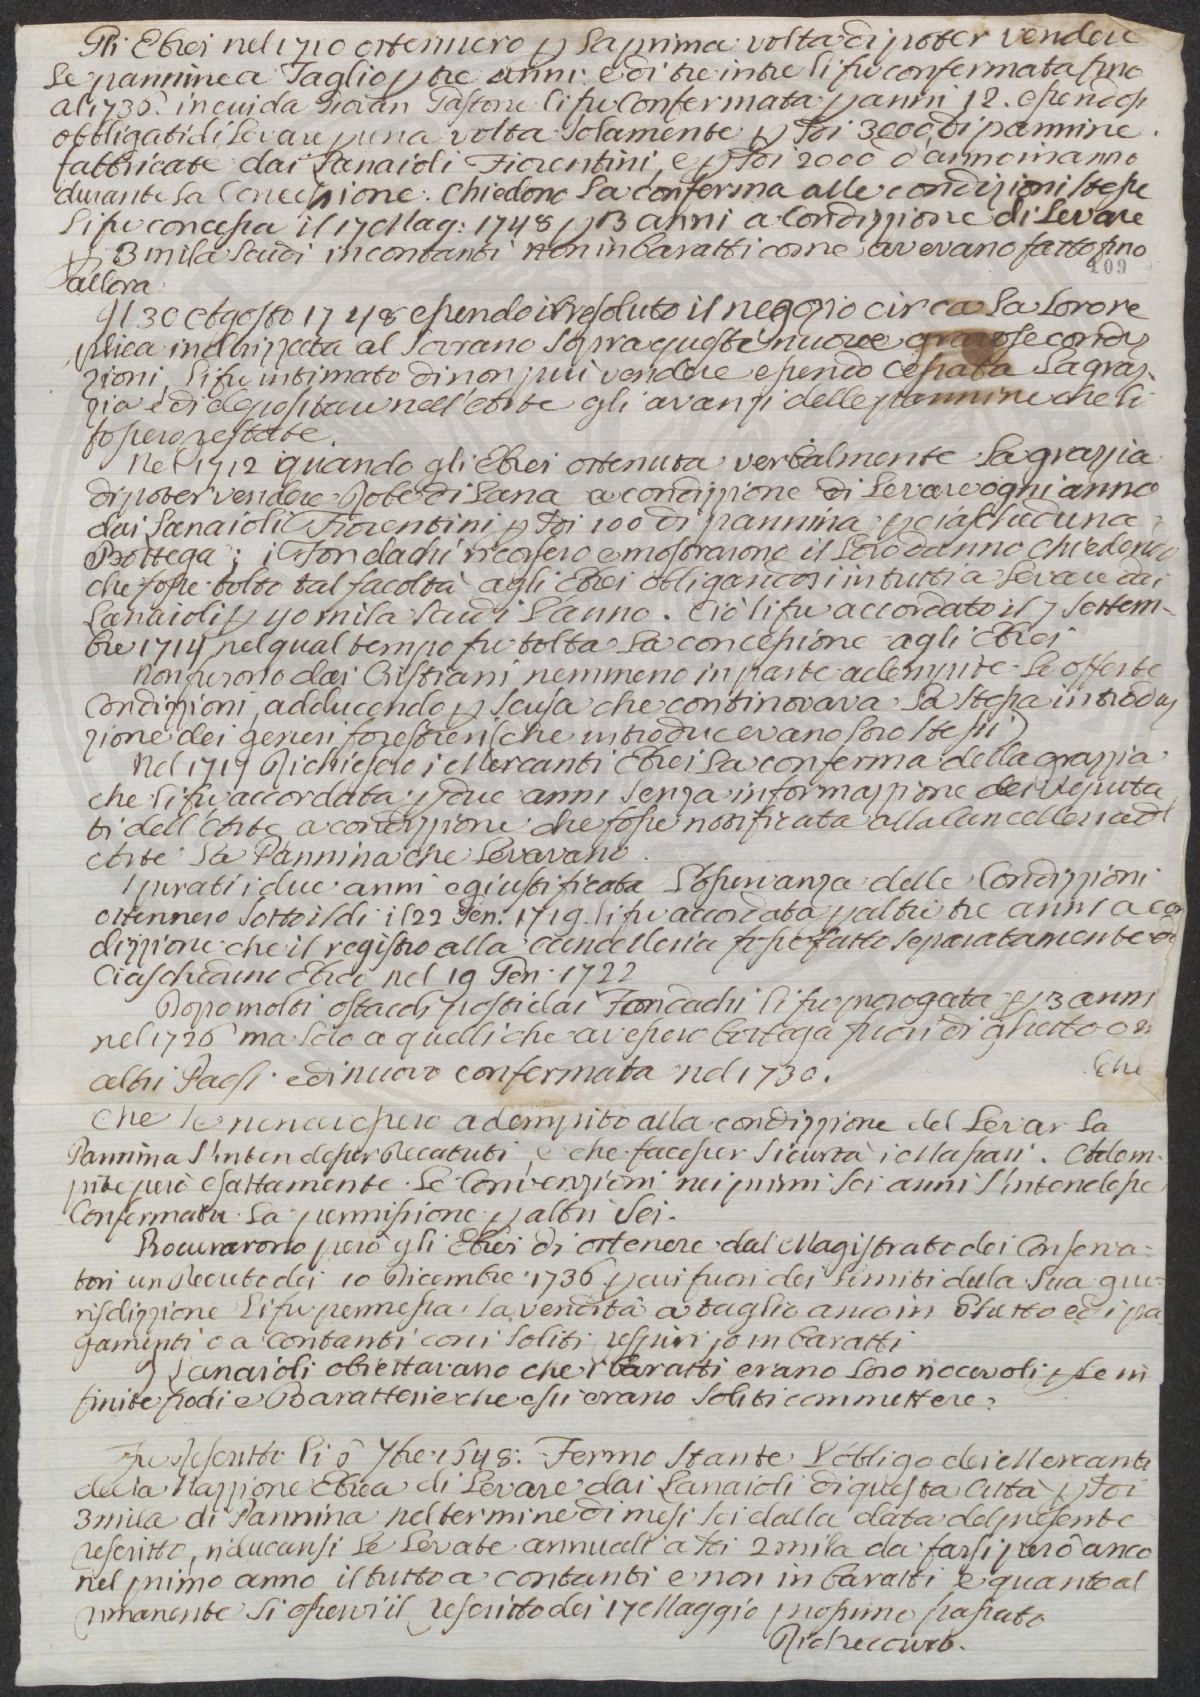 Gli Ebrei nel 1710 ottennero p la prima volta di poter vendere
le pannine a Taglio p tre anni. e di tre in tre li fu confermata fino
al 173 in cui da Giovan Gastone li fu Confermata p anni 12. essendosi
obbligati di Levare p una volta solamente p di 3000 di pannine
fabbricate dai Lanaioli Fiorentini, e p di 2000 d'anno in anno
durante la Concessione. Chiedono la conferma alle condizioni stesse
li fu concessa il 17 Mag: 1748 p 3 anni a Condizzione di Levare
p 3 mila scudi in contanti non in baratti come avevano fatto fino
109
allora
Il 30 Agosto 1748 essendo irresoluto il negozio circa la loro re
plica indirizzata al Sovrano sopra queste nuove gravose condiz
zioni, li fu intimato di non più vendere essendo cessata la graz-
zia e di depositare nell'Arte gli avanzi delle pannine che li
fossero restate.
Nel 1712 quando gli Ebrei ottenuta verbalmente la grazzia
di poter vendere Robe di Lana a condizzione di Levare ogni anno
dai Lanaioli Fiorentini p di 100 di pannina p ciascheduna
Bottega; i Fondachi ricorsero e mostrarono il loro danno chiedendo
che fosse tolto tal facoltà agli Ebrei obligandosi in tutti a Levare dai
Lanaioli p 40 mila scudi l'anno. Ciò li fu accordato il 7 Settem-
bre 1714 nel qual tempo fu tolta la concessione agli Ebrei
Non furono dai Cristiani nemmeno in parte adempite le offerte
Condizzioni, adducendo p scusa che continovava la stessa introduz
zione dei generi forestieri (che introducevano loro stessi)
Nel 1717 Richiesero i Mercanti Ebrei la conferma della grazzia
che li fu accordata p due anni senza informazzione dei Deputa
ti dell'Arte a condizzione che fosse notificata alla Cancelleria d
Arte la Pannina che Levavano.
Spirati i due anni e giustificata l'osservanza delle Condizzioni
ottennero sotto il di il 22 Gen: 1719. li fu accordata p altri tre anni a con
dizzione che il registro alla cancelleria fosse fatto separatamente di
Ciascheduno Ebreo nel 19 Gen: 1722
Dopo molti ostacoli posti dai Fondachi li fu prorogata p 3 anni
nel 1726 ma solo a quelli che avessero bottega fuori di ghetto o in
altri Paesi e di nuovo confermata nel 1730.
Che
Che se non avessero adempito alla condizzione del Levar la
Pannina s'intendesser Decaduti, e che facesser sicurtà i Massari. Adem-
pite però esattamente le Convenzioni nei primi sei anni s'intendesse
Confermata la permissione p altri sei.
Procurarono però gli Ebrei di ottenere dal Magistrato dei Conserva=
tori un Decreto dei 10 Dicembre 1736 p cui fuori dei limiti della sua giu=
risdizzione li fu permessa la vendita a taglio anco in Ghetto ed i pa
gamenti o a contanti con i soliti respiri, o in baratti
I Lanaioli obiettavano che i baratti erano loro nocevoli p le in
finite frodi e Baratterie che essi erano soliti commettere.
Fu rescritto li 7bre 1748: Fermo stante l'obbligo dei Mercanti
della Nazzione Ebrea di Levare dai Lanaioli di questa Città p di
3 mila di Pannina nel termine di mesi sei dalla data del presente
rescritto, riducansi le Levate annuali a di 2 mila da farsi però anco
nel primo anno il tutto a contanti e non in baratti e quanto al
rimanente si osservi il rescritto dei 17 Maggio prossimo passato